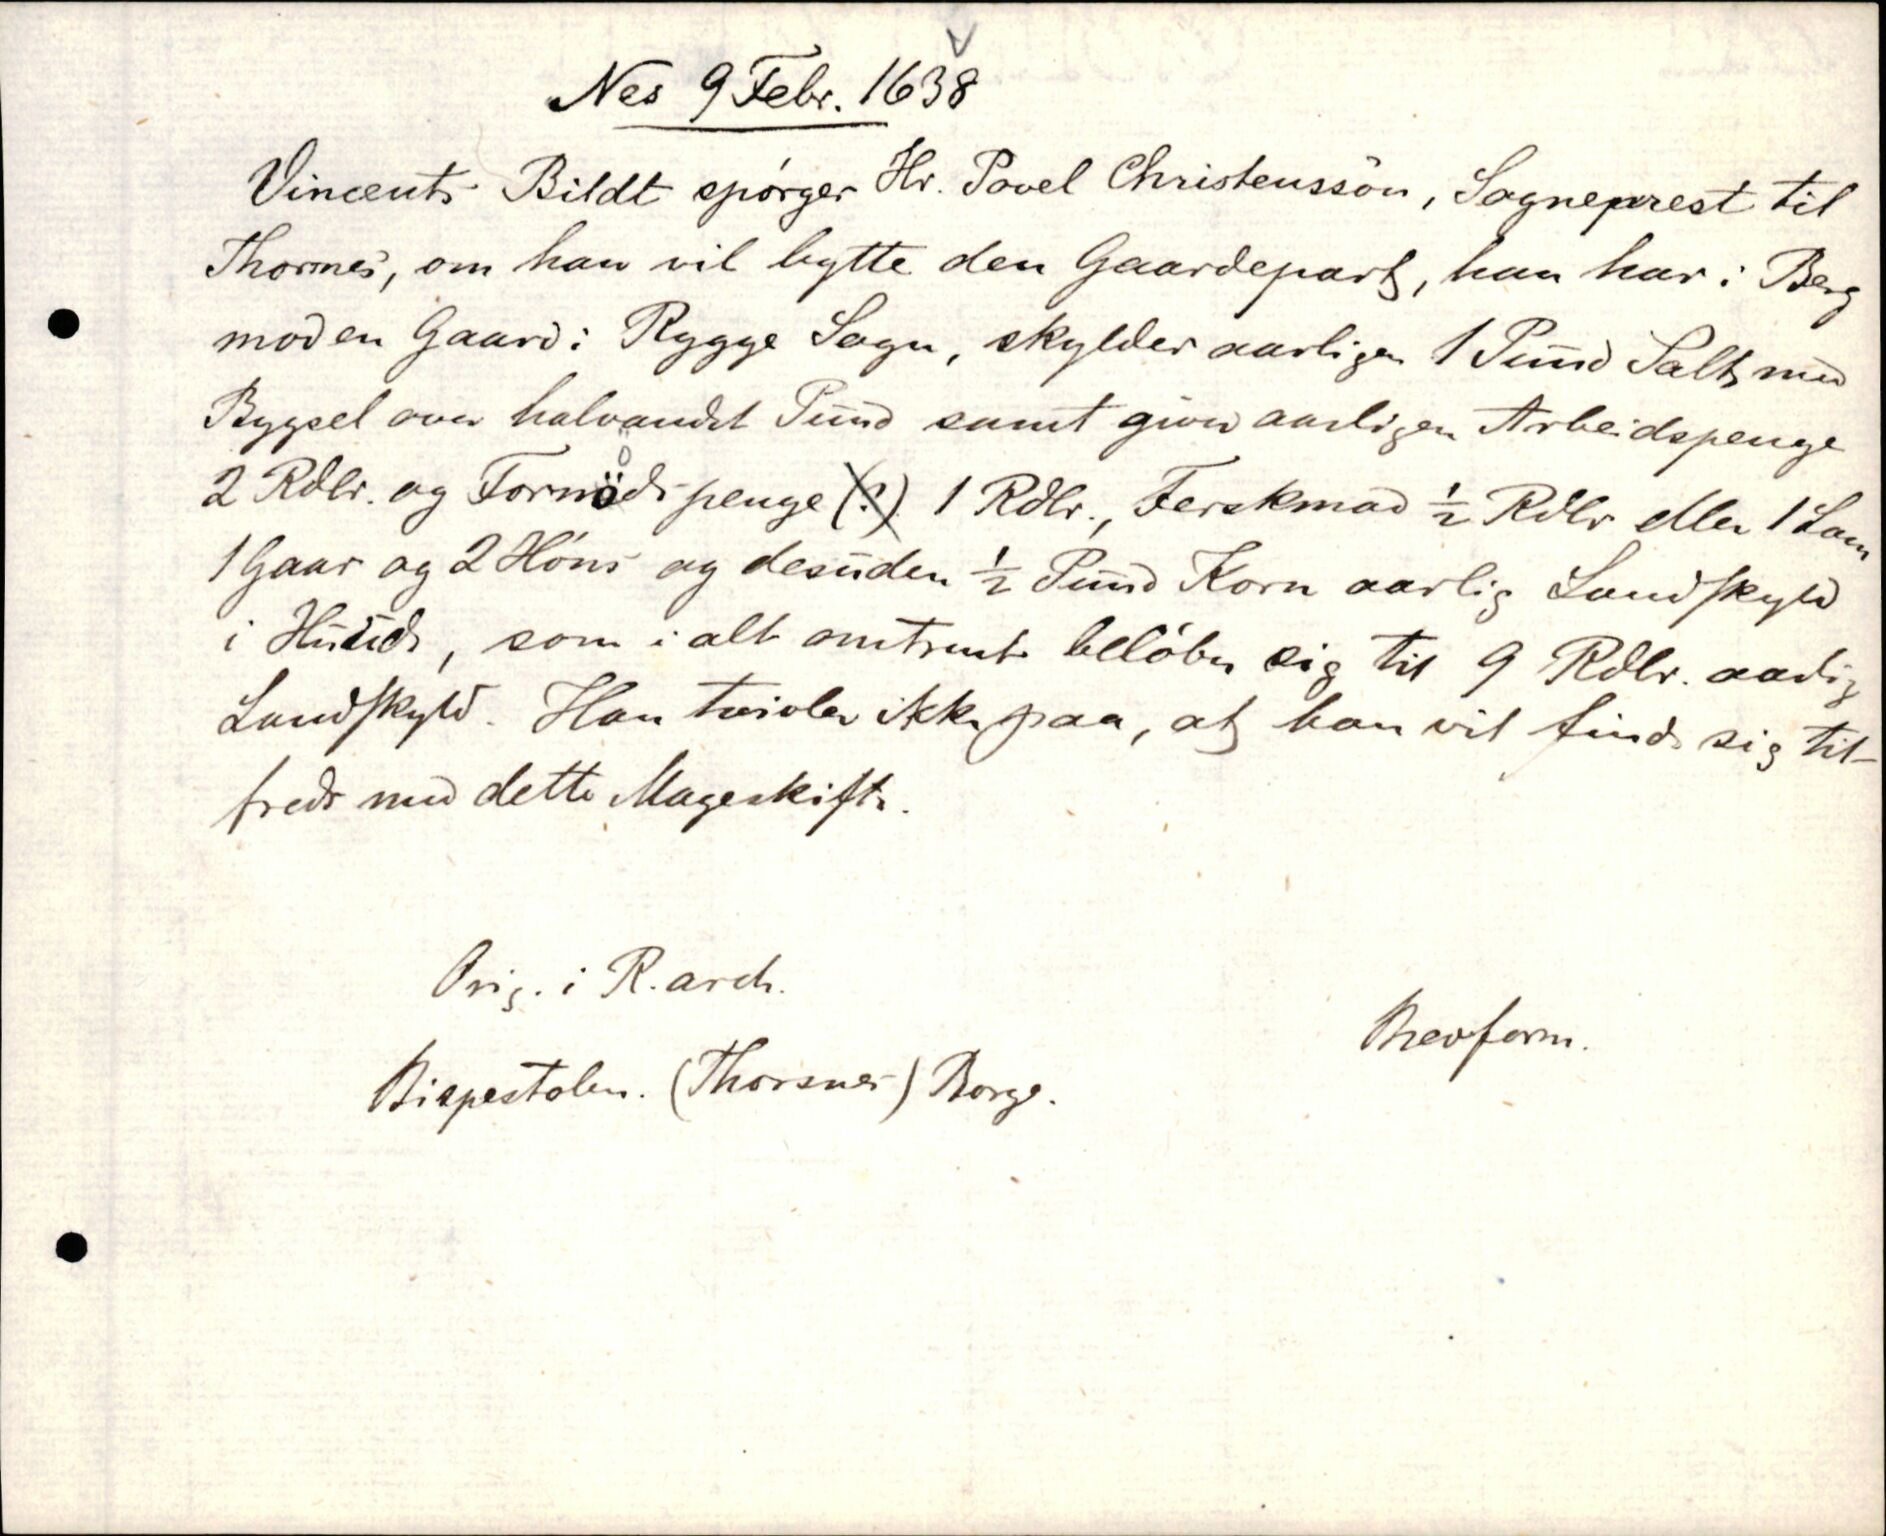 Nes 9 Febr. 1638
Vincents Bildt spörger Hr. Povel Christenssön, Sogneprest til
Thorsnes, om han vil bytte den Gaardepart, han har i Berg
mod en Gaard i Rygge Sogn, skylder aarligen 1 Pund Salt med
Bygsel over halvandet Pund samt giver aarligen Arbeidspenge
2 Rdlr. og Fornöds penge (?) 1 Rdlr., Ferskmad ½ Rdlr eller 1 Lam
1 Gaas og 2 Höns og desuden ½ Pund Korn aarlig Landskyld
i , som i alt omtrent belöber sig til 9 Rdlr. aarlig
Landskyld. Han tvivler ikke paa, at han vil finde sig til-
freds med dette Mageskifte.
Orig. i R. arch.
Brevform.
Bispestolen. (Thorsnes) Borge.